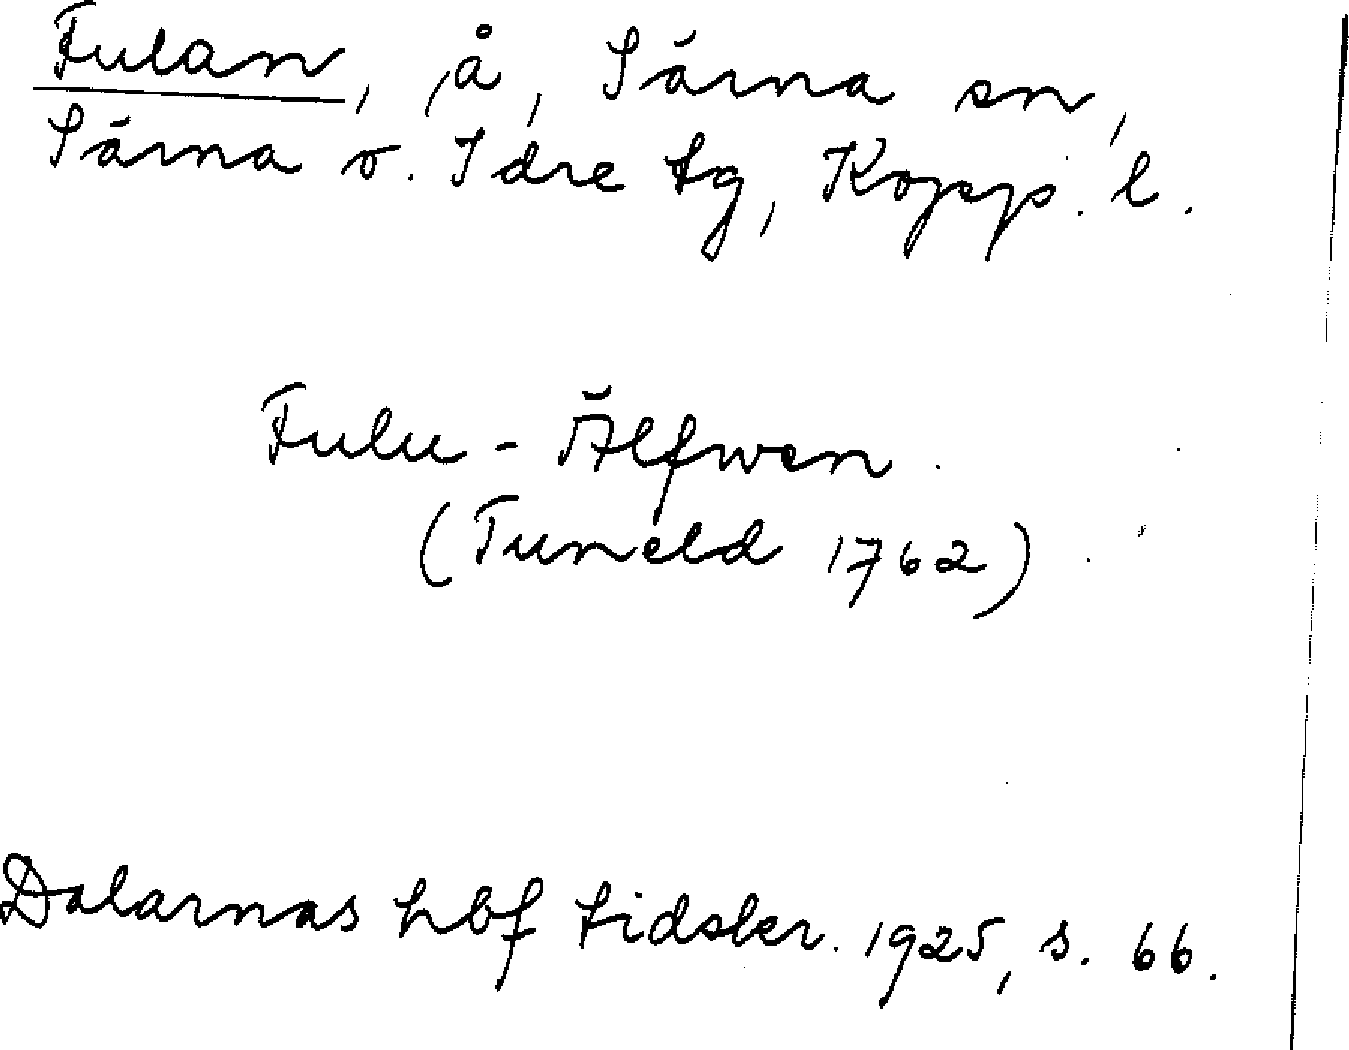 Fulan, å, Särna sn,
Särna o. Idre tg, Kopp. l.
Fulu-Älfwen
(Tuneld 1762)
Dalarnas hbf tidskr. 1925, s. 66.